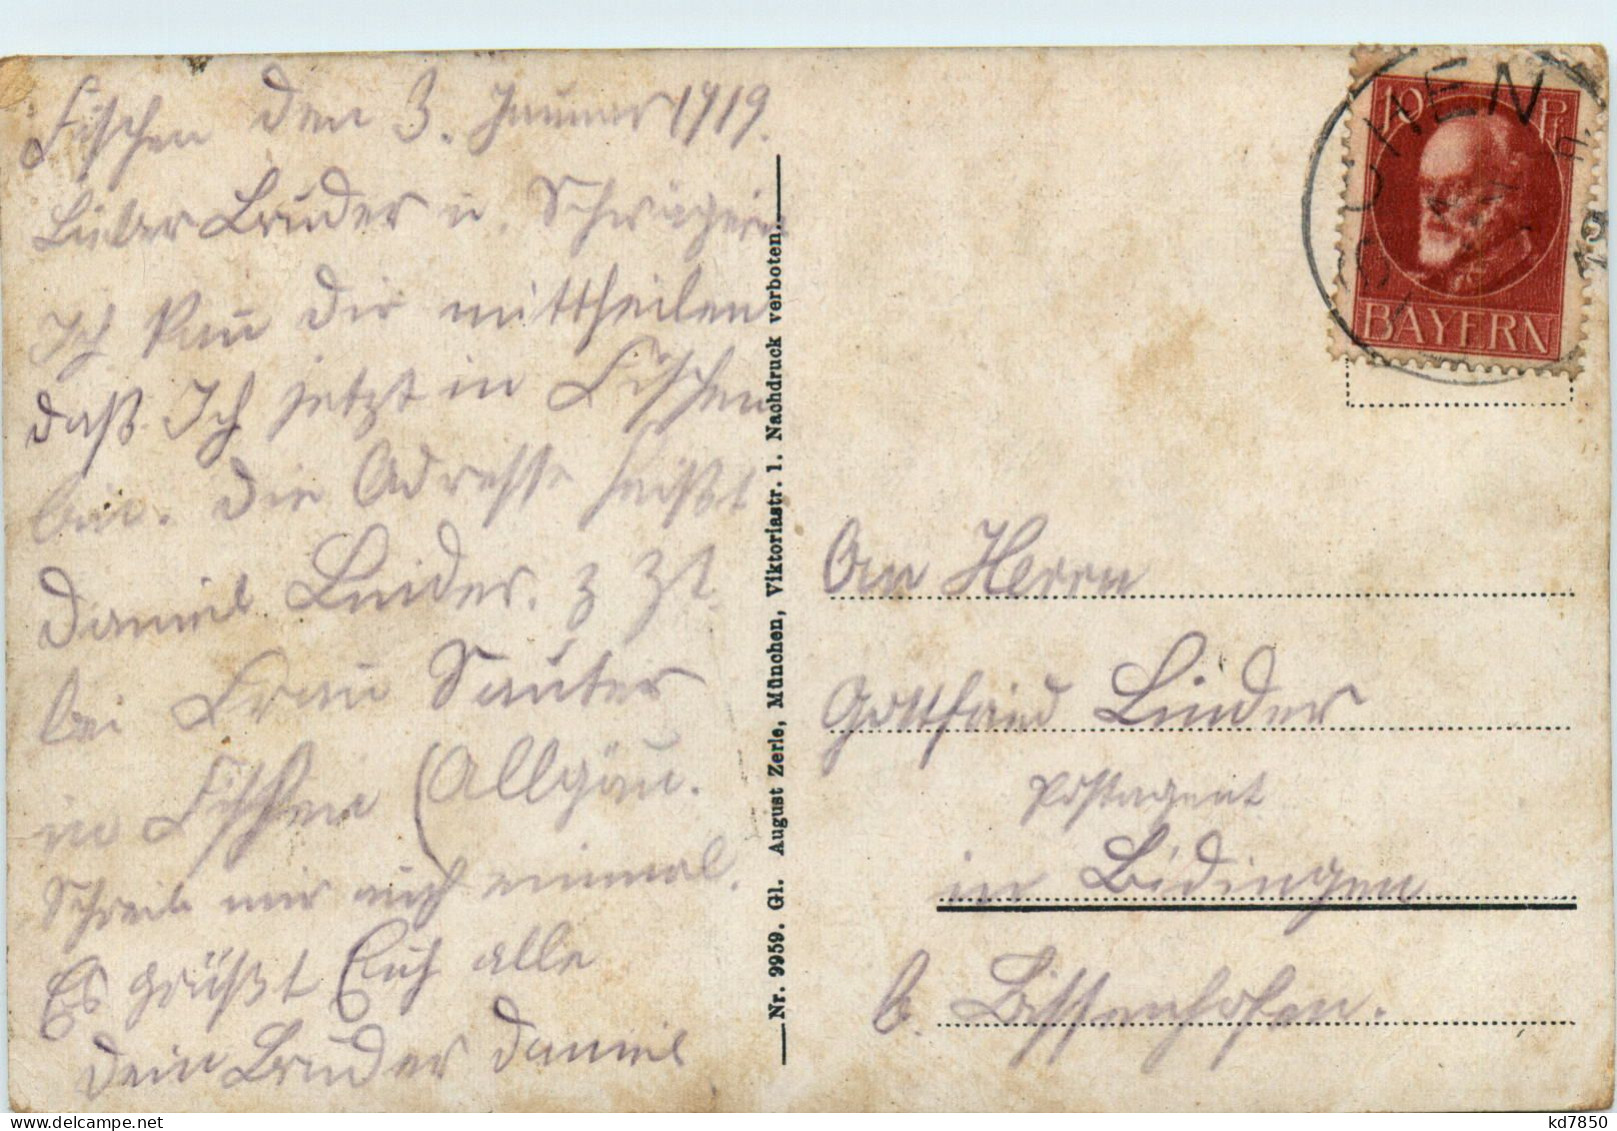 Fischen den 3. Januar 1919.
Lieber Bruder u. Schwägerin
Ich kan dir mittheilen
daß Ich jetzt in Fischen
bin. die Adresse heißt
Daniel Linder. z Zt.
bei Frau Sauter
in Fischen (Allgäu.
Schreib mir auch einmal.
Es grüßt Euch alle
Dein Bruder Daniel
Nr. 9959. Gl. August Zerle, München, Viktoriastr. 1. Nachdruck verboten.
10 Pf.
BAYERN
An Herrn
Gottfried Linder
Postagent
in Bidingen
b. Bissenhofen.
kd7850